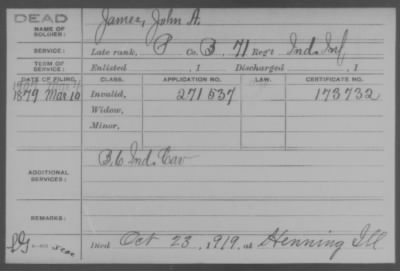 DEAD
NAME OF SOLDIER: James, John A.
SERVICE: Late rank, P Co. B, 71 Reg't Ind. Inf
TERM OF SERVICE: Enlisted , 1 Discharged , 1
DATE OF FILING. CLASS. APPLICATION NO. LAW. CERTIFICATE NO.
1879 Mar 10 Invalid, 271 537 173732
Widow,
Minor,
ADDITIONAL SERVICES: B. 6 Ind. Cav
REMARKS:
Died Oct 23, 1919, at Henning Ill